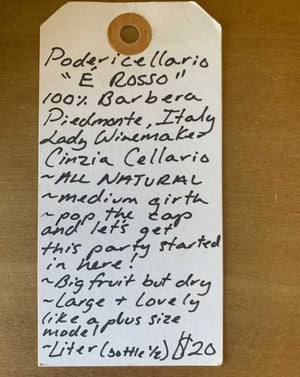 Podericellario
"É ROSSO"
100% Barbera
Piedmonte, Italy
Lady Winemaker
Cinzia Cellario
~ALL NATURAL
~medium girth
~pop the cap
and let's get
this party started
in here!
~Big fruit but dry
~Large + Lovely
like a plus size
model
~Liter (bottle ⅓) $20